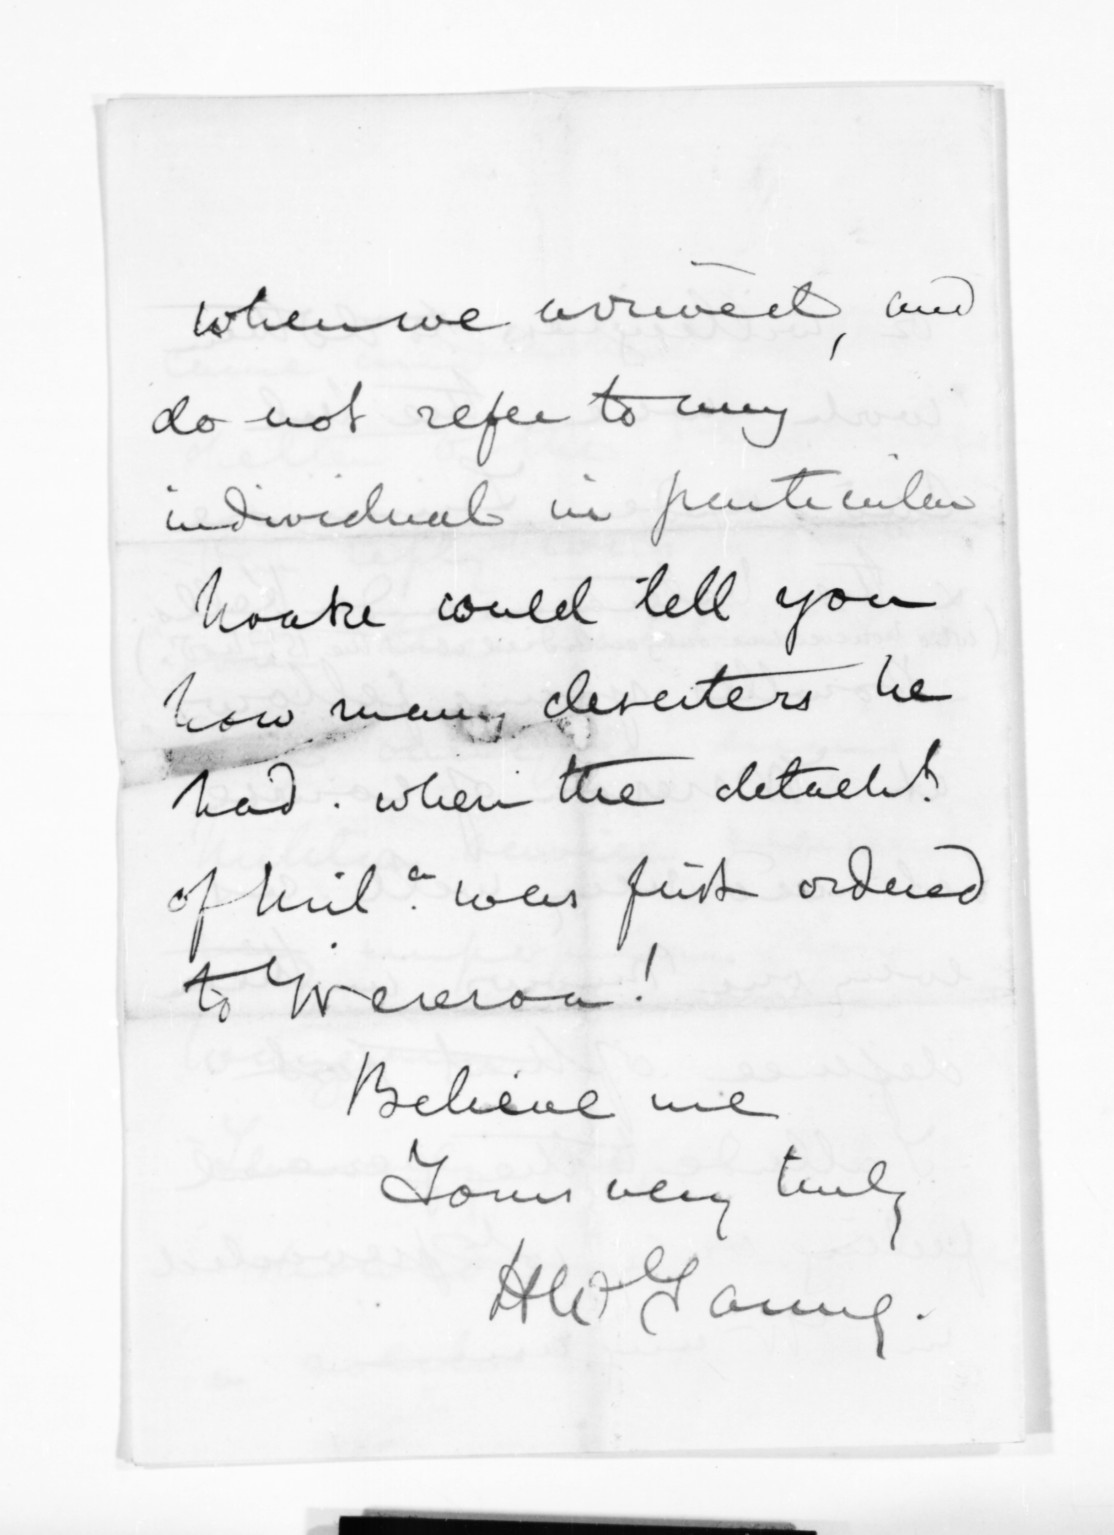 when we arrived, and
do not refer to any
individual in particular
Noake could tell you
how many deserters he
had. when the detacht.
of Mila. was first ordered
to Wereroa!
Believe me
Yours very truly
HW Young.